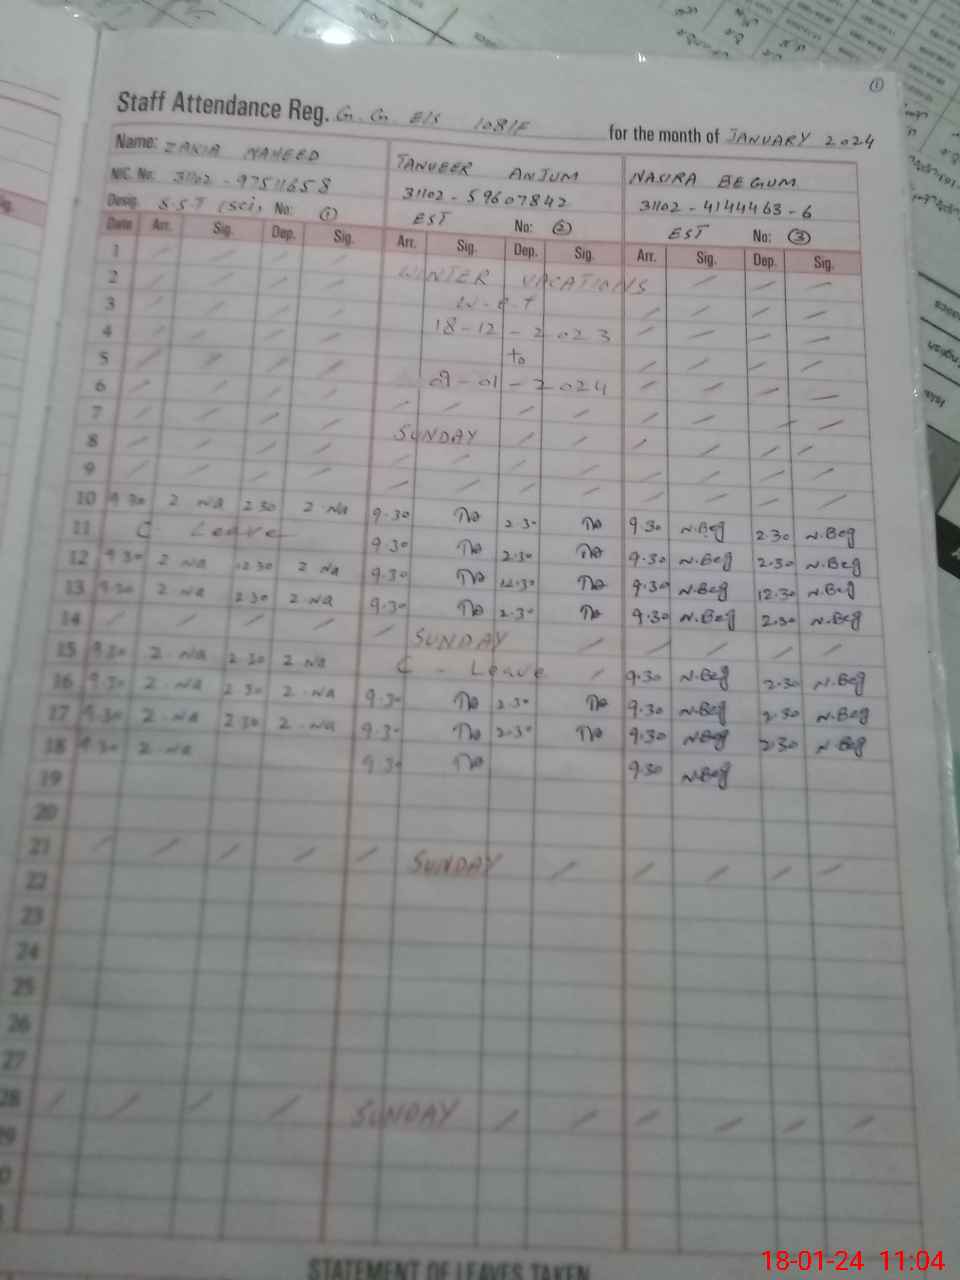 ①
Staff Attendance Reg. G. G. E/S 108/F for the month of JANUARY 2024
Name: ZAKIA NAHEED TANVEER ANJUM NASIRA BEGUM
NIC. No: 31102-97511658 31102-59607842 31102-4144463-6
Desig. S.S.T (Sci) No: ① EST No: ② EST No: ③
Date Arr. Sig. Dep. Sig. Arr. Sig. Dep. Sig. Arr. Sig. Dep. Sig.
1
2 WINTER VACATIONS
3 W.e.f
4 18-12-2023
5 to
6 09-01-2024
7 SUNDAY
8
9
10 9.30 2 Na 2.30 2 Na 9.30 2.30 9.30 N.Beg 2.30 N.Beg
11 C. Leave 9.30 2.30 9.30 N.Beg 2.30 N.Beg
12 9.30 2 Na 12.30 2 Na 9.30 12.30 9.30 N.Beg 12.30 N.Beg
13 9.30 2 Na 2.30 2 Na 9.30 2.30 9.30 N.Beg 2.30 N.Beg
14 SUNDAY
15 9.30 2 Na 2.30 2 Na C - Leave 9.30 N.Beg 2.30 N.Beg
16 9.30 2 Na 2.30 2 Na 9.30 2.30 9.30 N.Beg 2.30 N.Beg
17 9.30 2 Na 2.30 2 Na 9.30 2.30 9.30 N.Beg 2.30 N.Beg
18 9.30 2 Na 9.30 9.30 N.Beg
19
20
21 SUNDAY
22
23
24
25
26
27
28 SUNDAY
STATEMENT OF LEAVES TAKEN
18-01-24 11:04